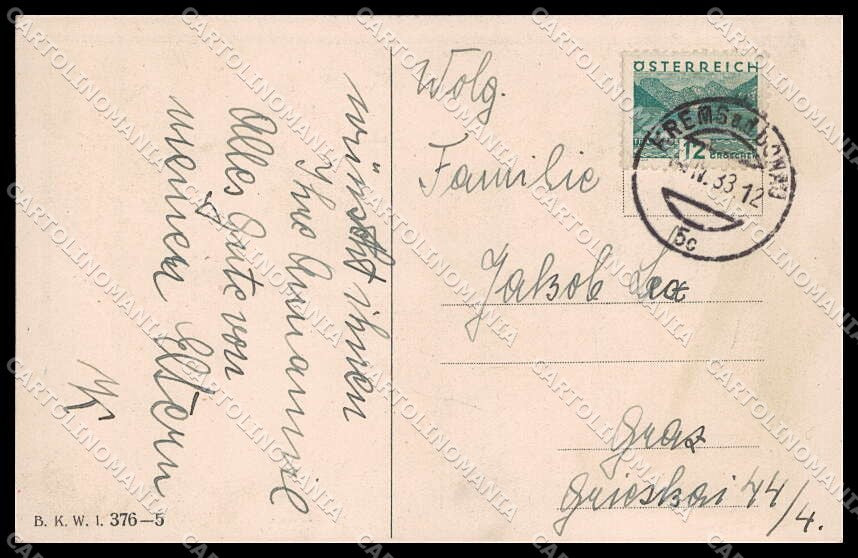 wünscht ihnen
Ihre Annamirl
Alles Gute von
meinen Eltern
B. K. W. I. 376—5
Wolg.
Familie
Jakob
Graz
Grieskai 44/4.
ÖSTERREICH
12 GROSCHEN
KREMS an der DONAU
IV. 33 12
5c
CARTOLINOMANIA